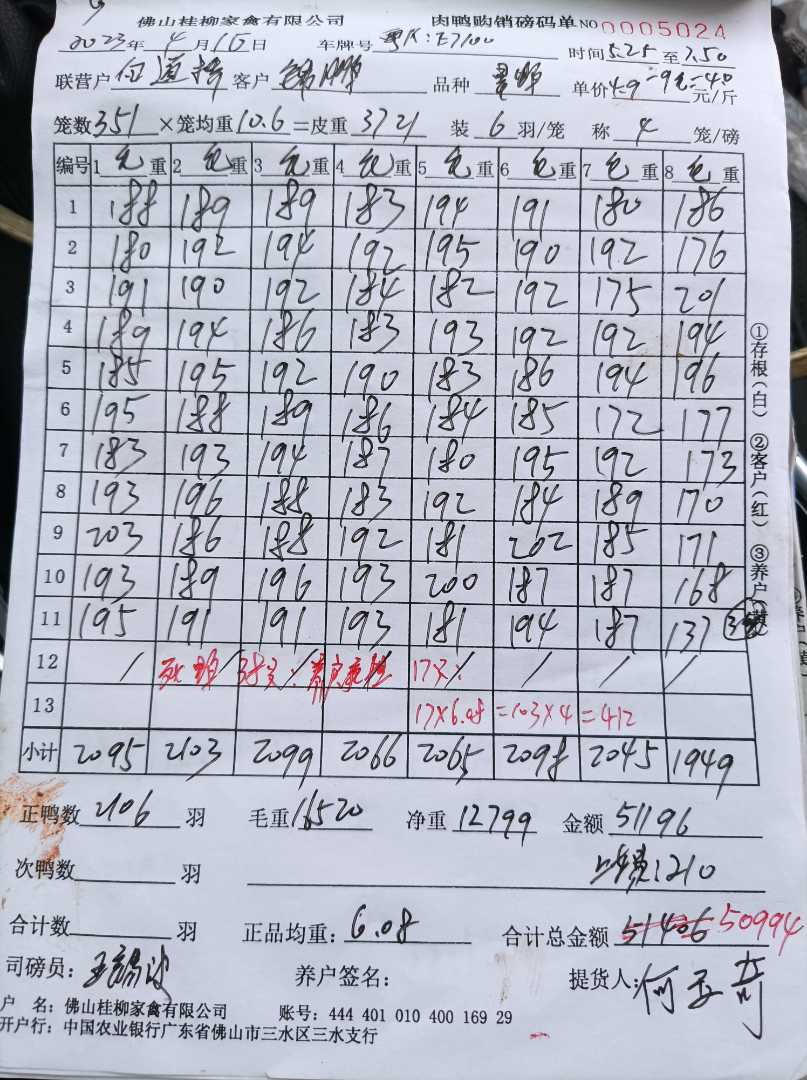 佛山桂柳家禽有限公司 肉鸭购销磅码单 NO 0005024
2023年 4月 15日 车牌号 粤K:E7100 时间 5.25 至 7.50
联营户 客户 锦鹏 品种 单价 4.9-9毛=4.0 元/斤
笼数 351 ×笼均重 10.6 =皮重 3721 装 6 羽/笼 称 4 笼/磅
编号 1 毛 重 2 毛 重 3 毛 重 4 毛 重 5 毛 重 6 毛 重 7 毛 重 8 毛 重
1 188 189 189 183 194 191 180 186
2 180 192 194 192 195 190 192 176
3 191 190 192 184 182 192 175 201
4 189 194 186 183 193 192 192 194
5 185 195 192 190 183 186 194 196
6 195 188 189 186 184 185 172 177
7 183 193 194 187 180 195 192 173
8 193 196 188 183 192 184 189 170
9 203 186 188 192 181 202 185 171
10 193 189 196 193 200 187 187 168
11 195 191 191 193 181 194 187 137
12 / 死鸭 38只 / 17只 / / / /
13 17×6.08 =103×4 =412
小计 2095 2103 2099 2066 2065 2098 2045 1949
正鸭数 2106 羽 毛重 16520 净重 12799 金额 51196
次鸭数 羽 210
合计数 羽 正品均重: 6.08 合计总金额 51406 50994
司磅员: 养户签名: 提货人:
户 名: 佛山桂柳家禽有限公司 账号: 444 401 010 400 169 29
开户行: 中国农业银行广东省佛山市三水区三水支行
①存根(白) ②客户(红) ③养户(黄)